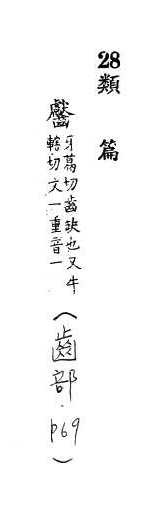 28類篇
齾 牙葛切齒缺也又牛
轄切文一重音一
(齒部.p69)